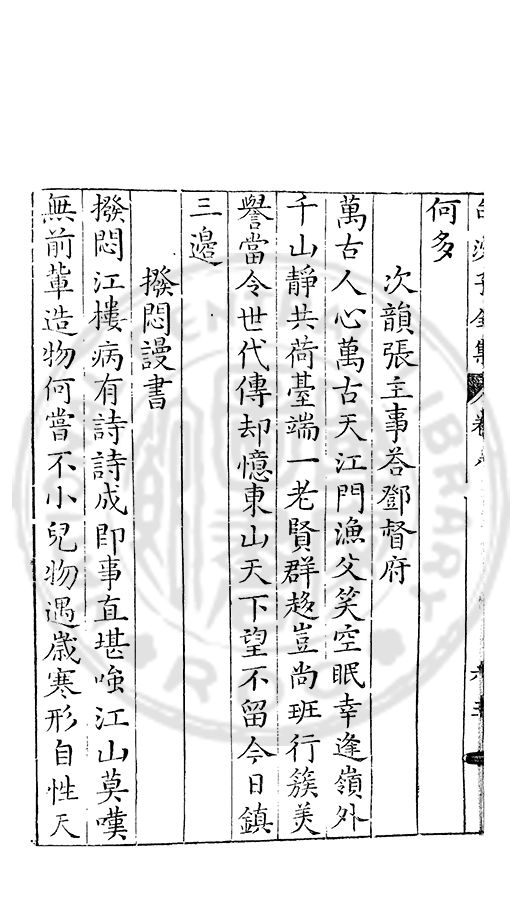 白沙子全集 卷
何多
次韻張主事荅鄧督府
萬古人心萬古天江門漁父笑空眠幸逢嶺外
千山靜共荷臺端一老賢群趍豈尚班行簇美
譽當令世代傳却憶東山天下望不留今日鎮
三邊
撥悶謾書
撥悶江樓病有詩詩成即事直堪嗤江山莫嘆
無前輩造物何嘗不小兒物遇歲寒形自性天